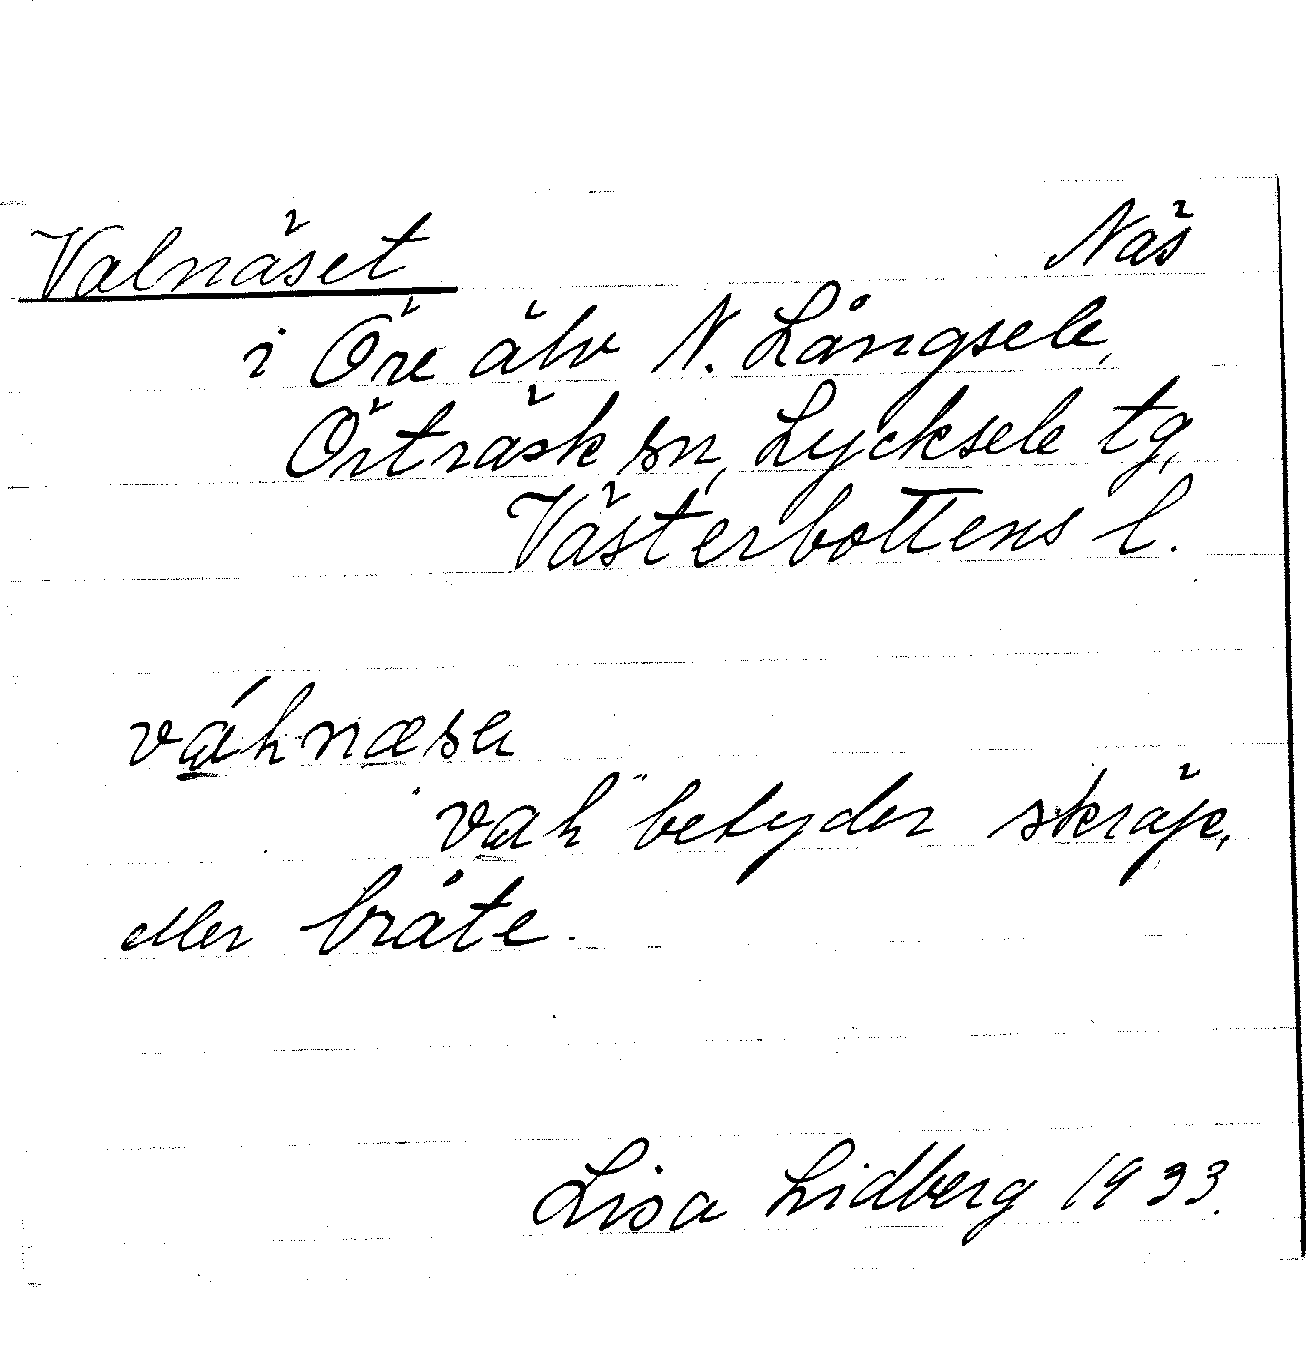 Valnäset Näs
i Öre älv N. Långsele,
Örträsk sn, Lycksele tg,
Västerbottens l.
váhnæsa
"vah" betyder skräp,
eller bråte.
Lisa Lidberg 1933.